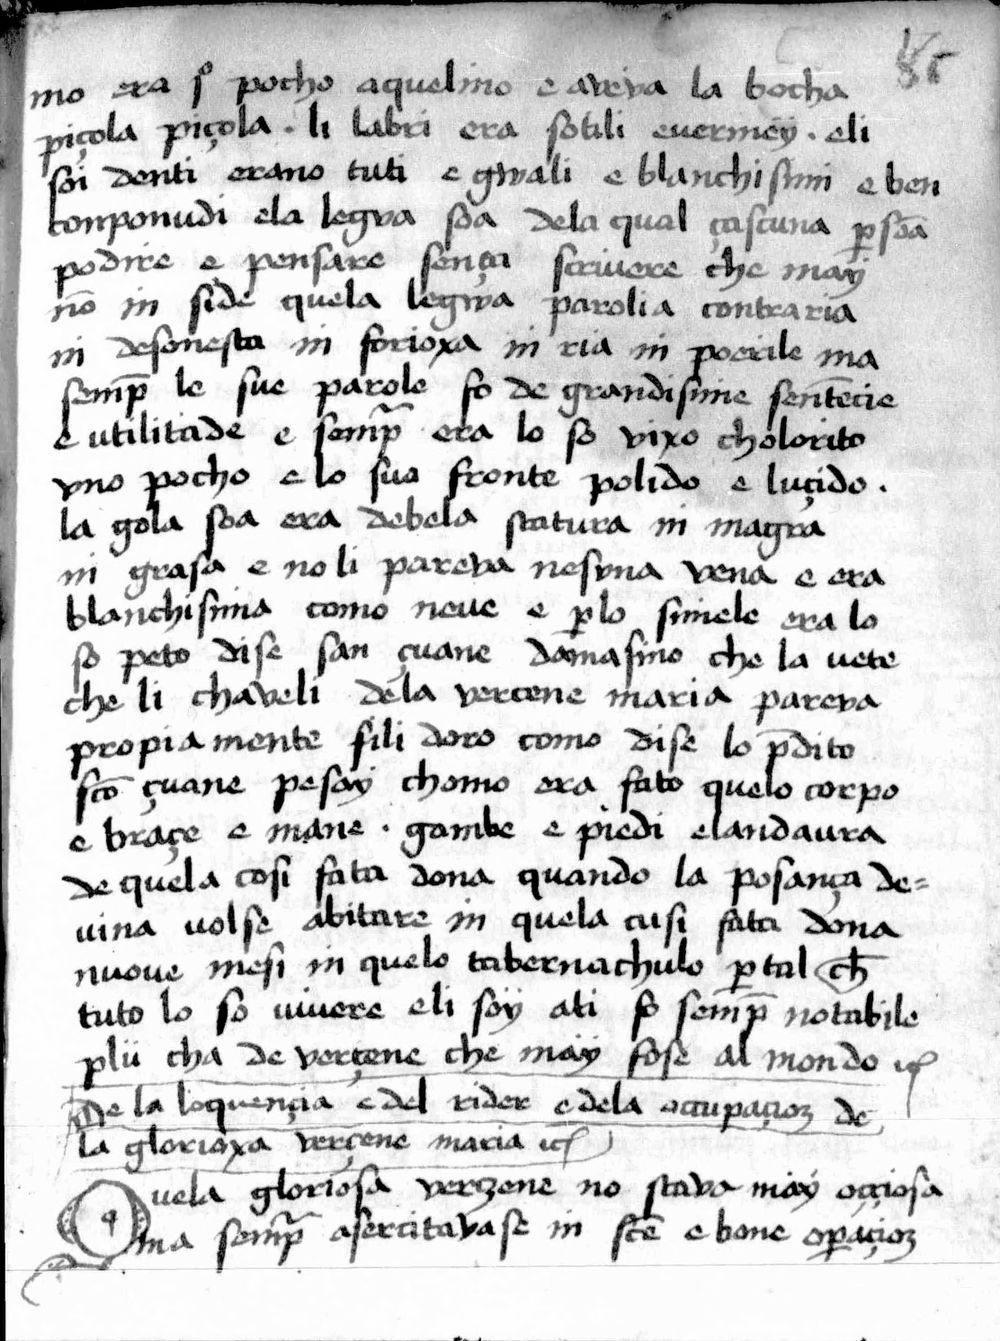 mo era so pocho aquelino e aveva la bocha
piçola piçola · li labri era sotili e vermeÿ · e li
soi denti erano tuti e gwali e blanchisimi e ben
componudi e la legva soa de la qual çascuna p̱sōa
podire e pensare sença scrivere che maÿ
nō in side quela legwa parolia contraria
ni desonesta ni forioxa ni ria ni poerile ma
semp̄ le sue parole fo de grandisime sentēcie
e utilitade e semp̄ era lo so vixo cholorito
vno pocho e lo suo fronte polido e luçido ·
la gola soa era de bela statura ni magra
ni grasa e no li pareva nesvna vena e era
blanchisima como neve e p̱ lo simele era lo
so peto dise san çuane damasino che la vete
che li chaveli dela vercene maria pareva
propiamente fili doro como dise lo p̄dito
scō çuane pesaÿ chomo era fato quelo corpo
e braçe e mane · gambe e piedi e landaura
de quela cosi fata dona quando la posança de=
vina volse abitare in quela cusi fata dona
nuove mesi in quelo tabernachulo p̱ tal ch̄
tuto lo so vivere e li soÿ ati fo semp̄ notabile
plu cha de verçene che maÿ fose al mondo
De la loquençia e del rider e dela occupaçioȝ de
la glorioxa verçene maria
Quela gloriosa verzene no stava maÿ oçiosa
ma semp̄ asercitavase in scē e bone op̱açioȝ